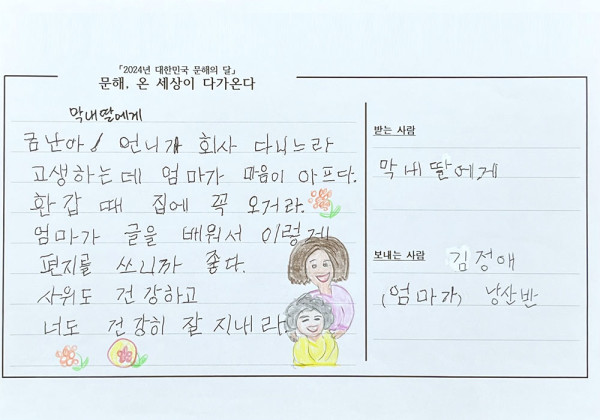 「2024년 대한민국 문해의 달」
문해, 온 세상이 다가온다
막내딸에게
금난아! 언니가 회사 다니느라
고생하는데 엄마가 마음이 아프다.
환갑 때 집에 꼭 오거라.
엄마가 글을 배워서 이렇게
편지를 쓰니까 좋다.
사위도 건강하고
너도 건강히 잘 지내라
받는 사람
막내딸에게
보내는 사람
김정애
(엄마가) 낭산반